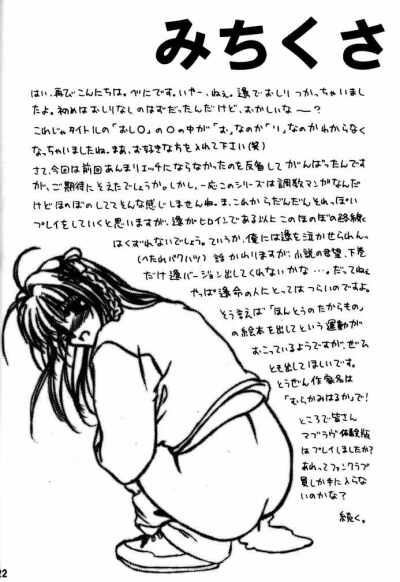 みちくさ
はい、再びこんにちは。べにです。いやー、ねぇ。遙でおしりつかっちゃいまし
たよ。初めはおしりなしのはずだったんだけど、おかしいなー?
これじゃタイトルの「おしO」のOの中が「む」なのか「り」なのかわからなく
なっちゃいましたね。まあ、お好きな方を入れて下さい(笑)
さて、今回は前回あんまりエッチにならなかったのを反省してがんばったんです
が、ご期待にそえたでしょうか。しかし、一応このシリーズは調教マンガなんだ
けどほのぼのしててそんな感じしませんねぇ。ま、これからだんだんそれっぽい
プレイをしていくと思いますが、遙がヒロインである以上このほのぼの路線
はくずれないでしょう。ていうか、俺には遙を泣かせられんっ
(へたれバクハツ) 話かわりますが、小説の君望、下巻
だけ遙バージョン出してくれないかな…。だってねぇ
やっぱ遙命の人にとってはつらいのですよ。
そう言えば「ほんとうのたからもの」
の絵本を出してという運動が
おこっているようですが、ぜひ
とも出してほしいです。
とうぜん作者名は
「むらかみはるか」で!
ところで皆さん
マブラヴ体験版
はプレイしましたか?
あれってファンクラブ
員しか手に入らな
いのかな?
続く。
22